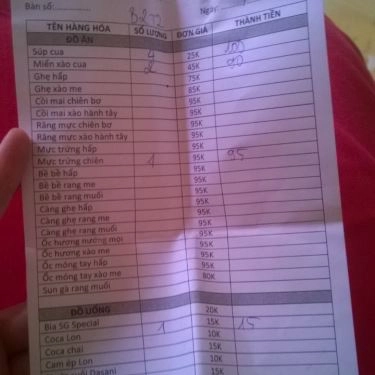 Bàn số: B22 Ngày:
TÊN HÀNG HÓA SỐ LƯỢNG ĐƠN GIÁ THÀNH TIỀN
ĐỒ ĂN
Súp cua 4 25K 100
Miến xào cua 2 45K 90
Ghẹ hấp 75K
Ghẹ xào me 85K
Cồi mai chiên bơ 95K
Cồi mai xào hành tây 95K
Răng mực chiên bơ 95K
Răng mực xào hành tây 95K
Mực trứng hấp 95K
Mực trứng chiên 1 95K 95
Bề bề hấp 95K
Bề bề rang me 95K
Bề bề rang muối 95K
Càng ghẹ hấp 95K
Càng ghẹ rang me 95K
Càng ghẹ rang muối 95K
Ốc hương nướng mọi 95K
Ốc hương xào me 95K
Ốc móng tay hấp 95K
Ốc móng tay xào me 80K
Sụn gà rang muối
ĐỒ UỐNG 20K
Bia SG Special 1 15K 15
Coca Lon 10K
Coca chai 15K
Cam ép Lon 10K
Dasani 15K